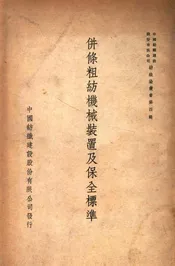 中國紡織建設
股份有限公司
併條粗紡機械裝置及保全標準
中國紡織建設股份有限公司發行